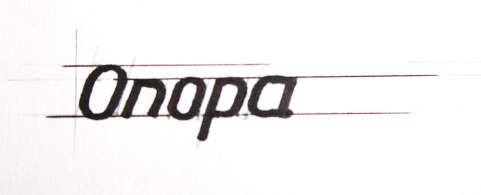 Опора